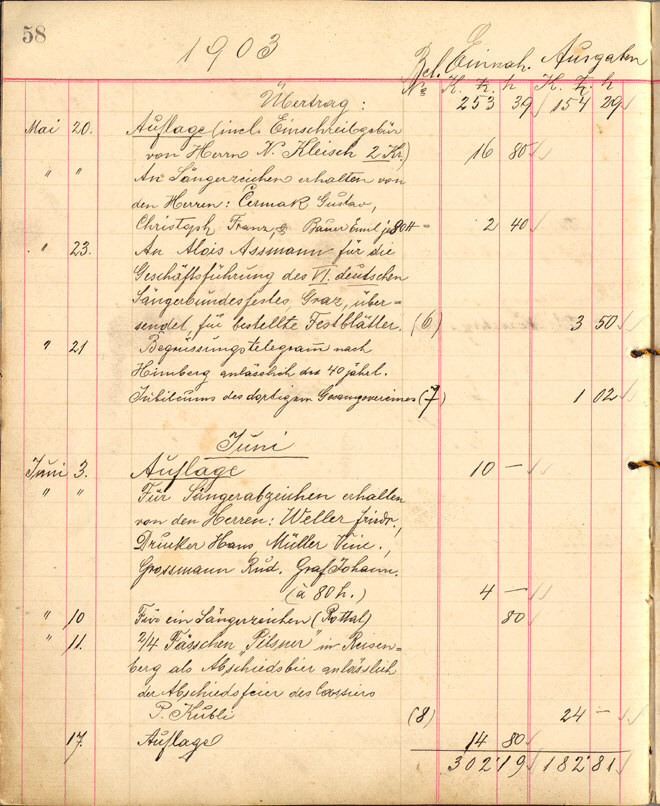 58
1903
Bel. Einnah. Ausgaben
No K. h K. h
Übertrag: 253 39 154 29
Mai 20. Auflage (incl. Einschreibgebür
von Herrn N. Kleisch 2 Kr.) 16 80
" " An Sängerzeichen erhalten von
den Herren: Čermak Gustav,
Christoph Franz, & Bauer Emil je 80 H = 2 40
" 23. An Alois Assmann für die
Geschäftsführung des VI. deutschen
Sängerbundesfestes Graz, über-
sendet, für bestellte Festblätter. (6) 3 50
" 21 Begrüssungstelegram nach
Himberg anlässlich des 40 jähel.
Jubiläums des dortigem Gesangsvereines (7) 1 02
Juni
Juni 3. Auflage 10 —
" " Für Sängerabzeichen erhalten
von den Herren: Weller Friedr.,
Drucker Hans, Müller Vinc.,
Grossmann Rud. Graf Johann.
(à 80 h.) 4 —
" 10 Für ein Sängerzeichen (Rottal) 80
" 11. 2/4 Fässchen "Pilsner" in Reisen-
berg als Abschiedsbier anlässlich
der Abschiedsfeier des Cassiers
P. Kubli (8) 24 —
17. Auflage 14 80
302 19 182 81